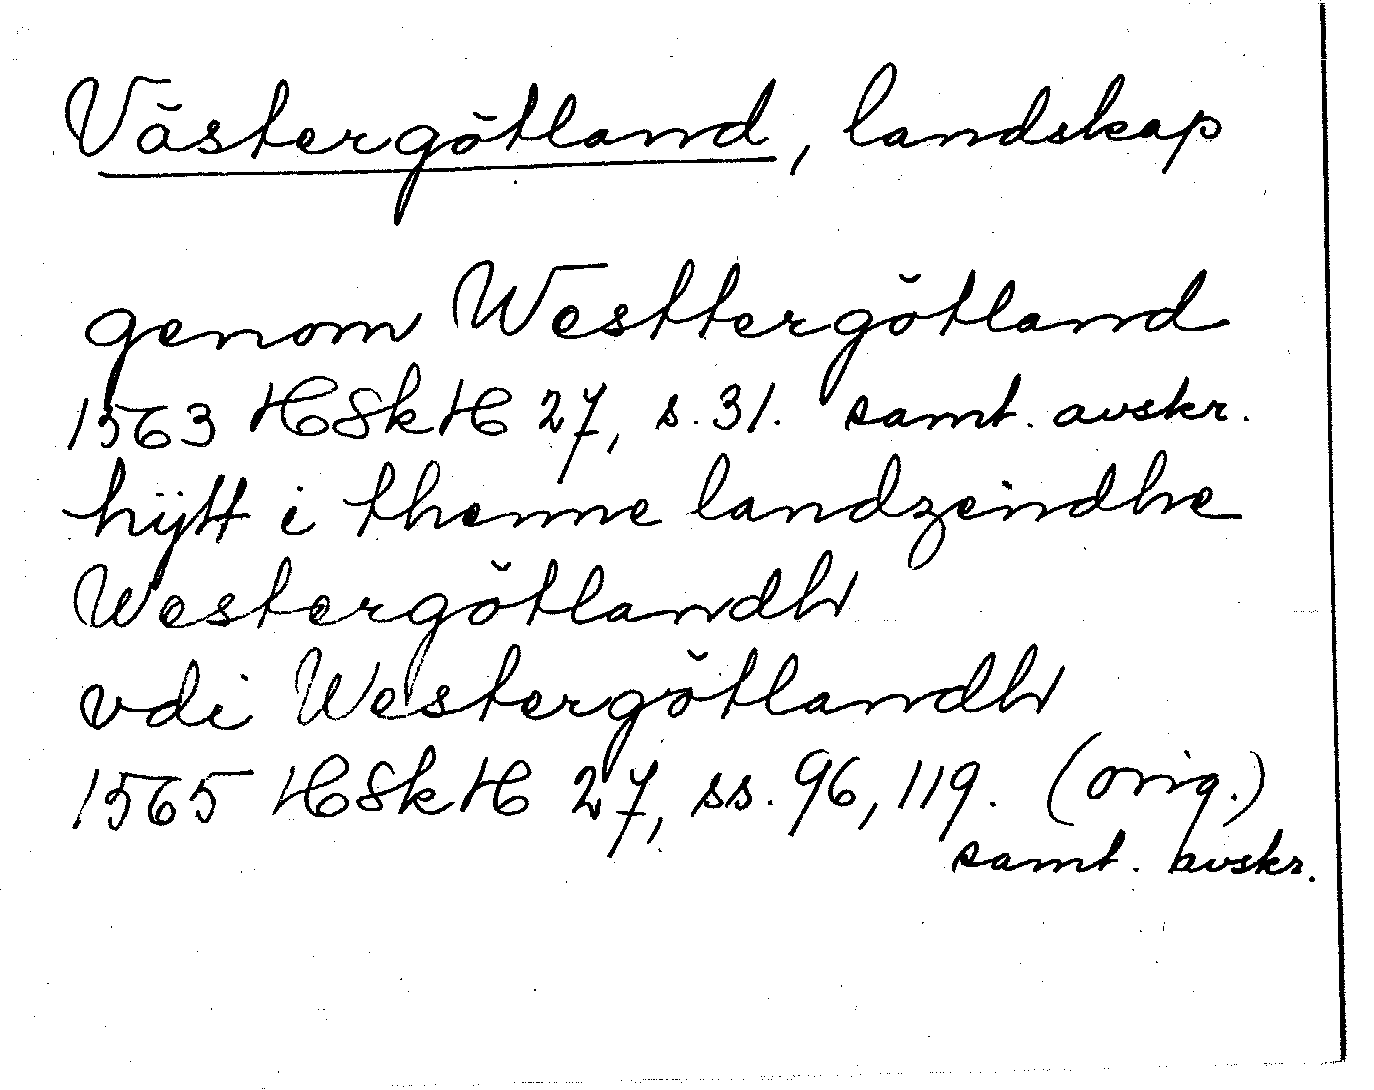 Västergötland, landskap
genom Westtergötland
1563 HSkH 27, s. 31. samt. avskr.
hÿtt i thenne landzeindhe
Westergötlandh
vdi Westergötlandh
1565 HSkH 27, ss. 96, 119. (orig.)
samt. avskr.